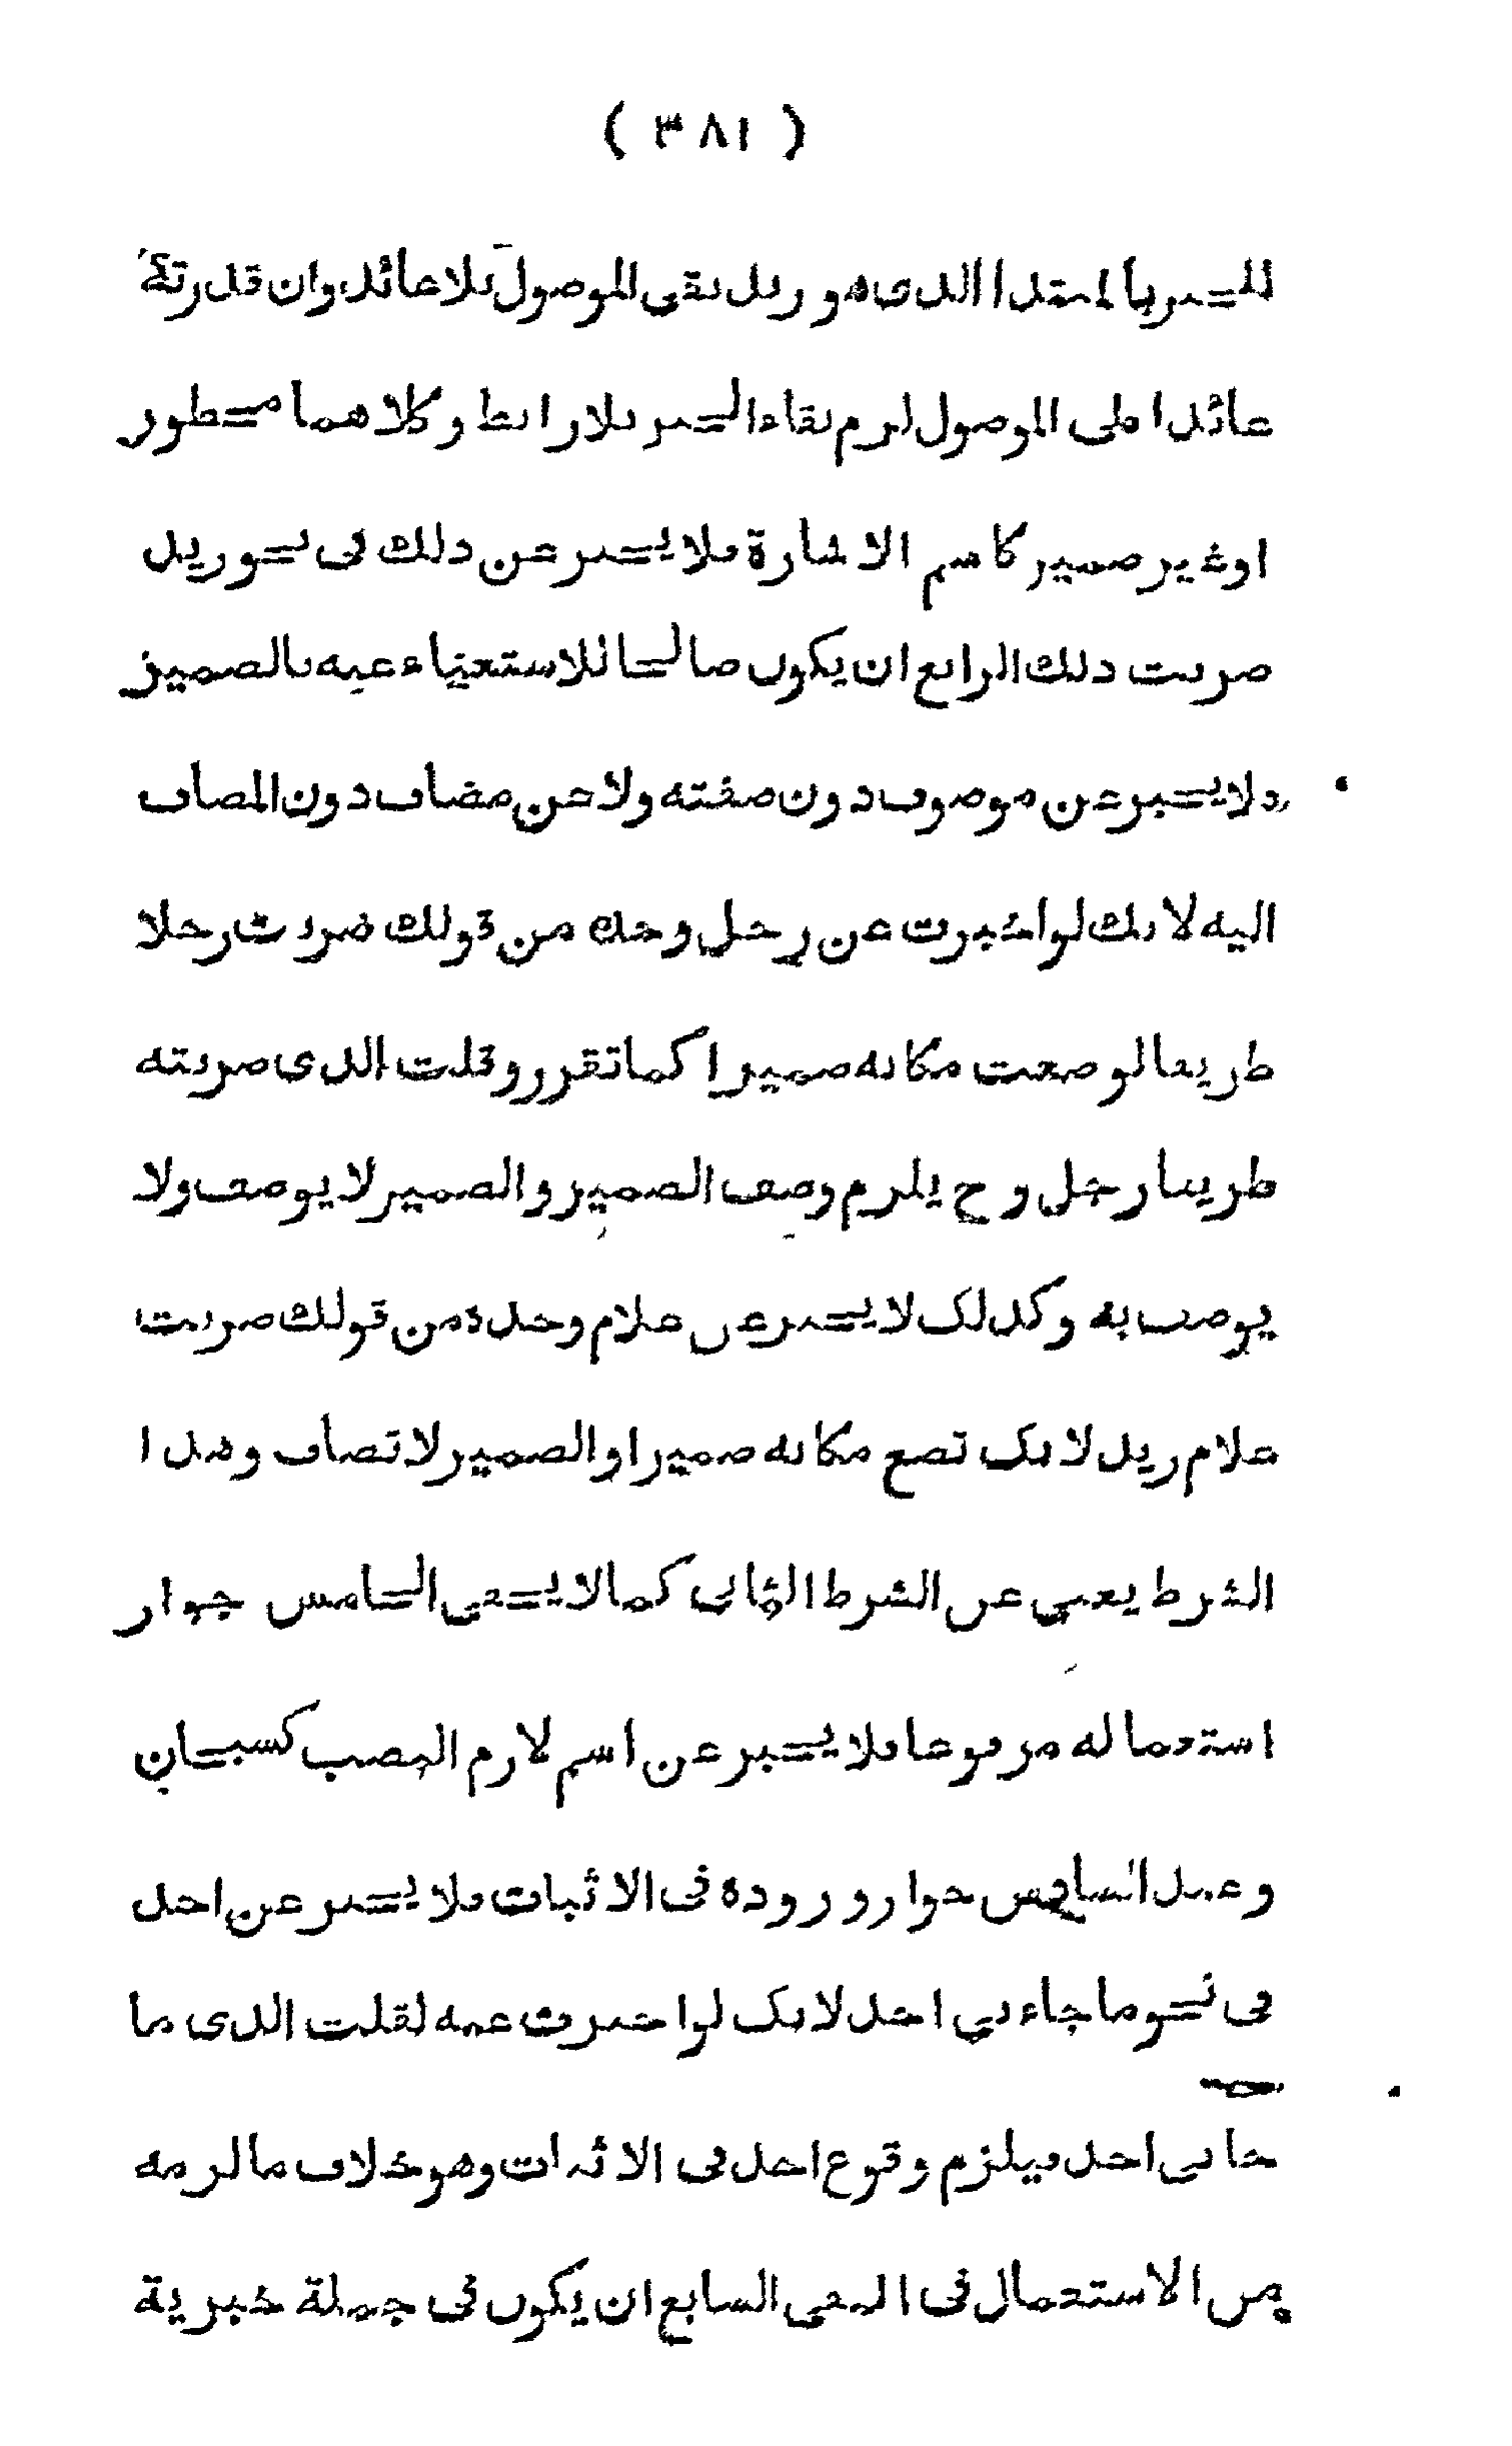 ( ٣٨١ )
للخبر بالمبتدا الذى هو زيد بقى الموصول بلا عائد وان قدرته
عائدا على الموصول لزم بقاء الخبر بلا رابط و كلاهما محظور
او غير ضمير كاسم الاشارة فلا يخبر عن ذلك فى نحو زيد
ضربت ذلك الرابع ان يكون صالحا للاستغناء عنه بالضمير
ولا يخبر عن موصوف دون صفته ولا عن مضاف دون المضاف
اليه لانك لو اخبرت عن رجل وحده من قولك ضربت رجلا
ظريفا لوضعت مكانه ضميرا كما تقرر وقلت الذى ضربته
ظريفا رجل و ح يلزم وصف الضمير والضمير لا يوصف ولا
يوصف به وكذلك لا يخبر عن غلام وحده من قولك ضربت
غلام زيد لانك تضع مكانه ضميرا والضمير لا تضاف وهذا
الشرط يغنى عن الشرط الثانى كما لا يخفى الخامس جواز
استعماله مرفوعا فلا يخبر عن اسم لازم النصب كسبحان
وعند السادس جواز وروده فى الاثبات فلا يخبر عن احد
فى نحو ما جاءنى احد لانك لو اخبرت عنه لقلت الذى ما
جانى احد فيلزم وقوع احد فى الاثبات وهو خلاف ما لزمه
من الاستعمال فى النفى السابع ان يكون فى جملة خبرية